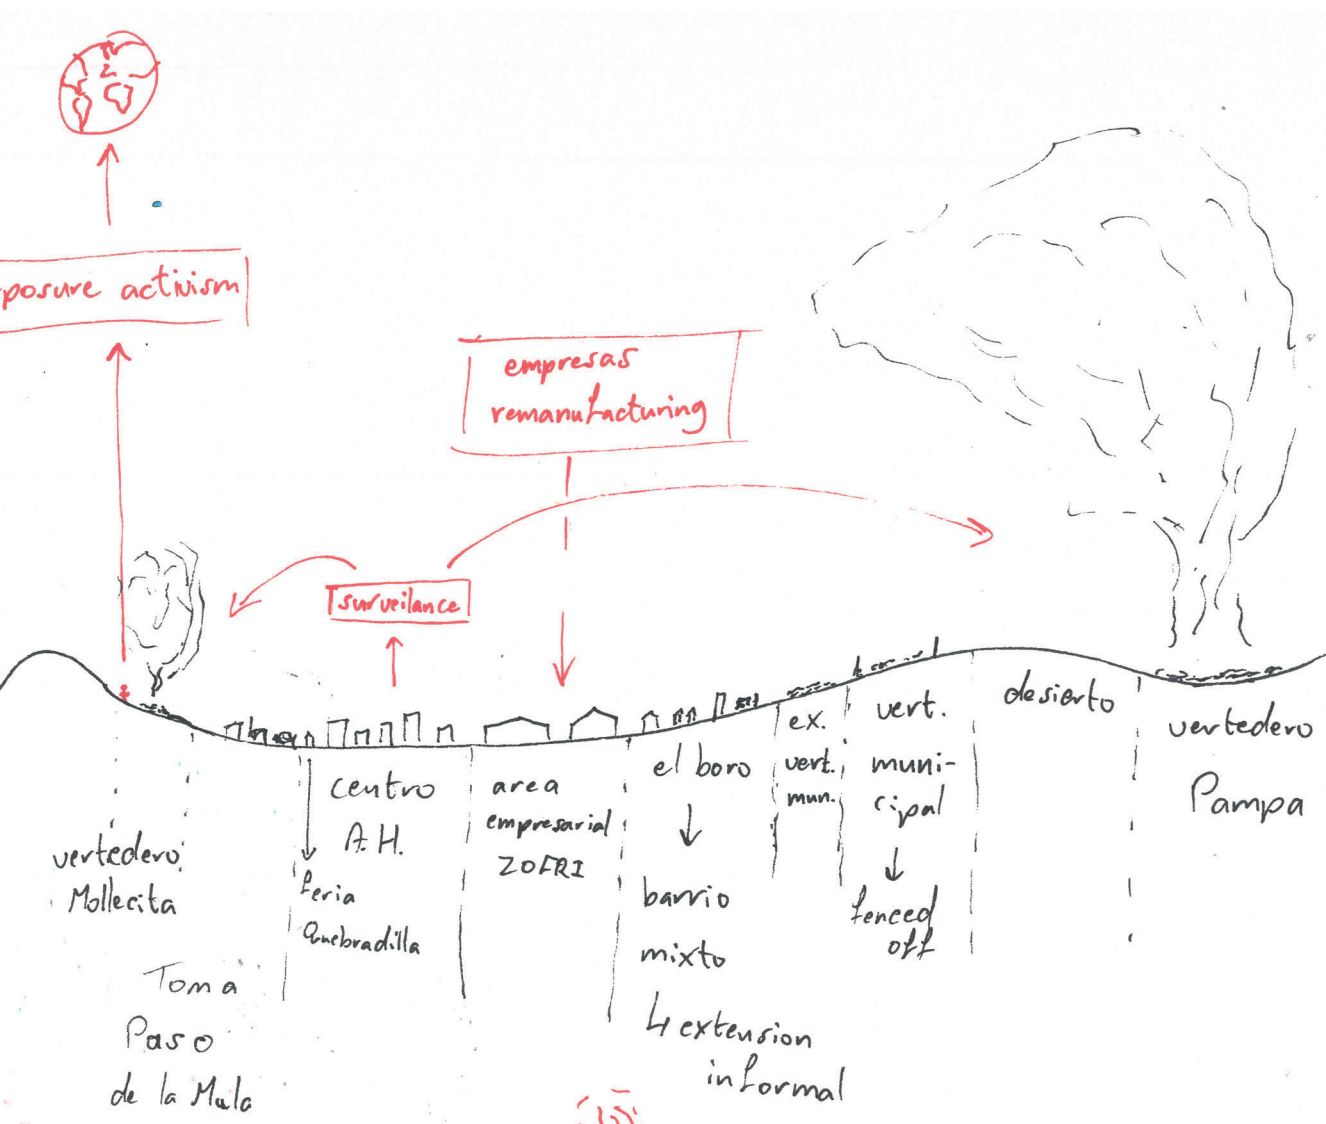 posure activism
empresas
remanufacturing
surveilance
vertedero
Mollecita
Toma
Paso
de la Mula
feria
Quebradilla
centro
A.H.
area
empresarial
ZOFRI
el boro
barrio
mixto
extension
informal
ex.
vert.
mun.
vert.
muni-
cipal
fenced
off
desierto
vertedero
Pampa